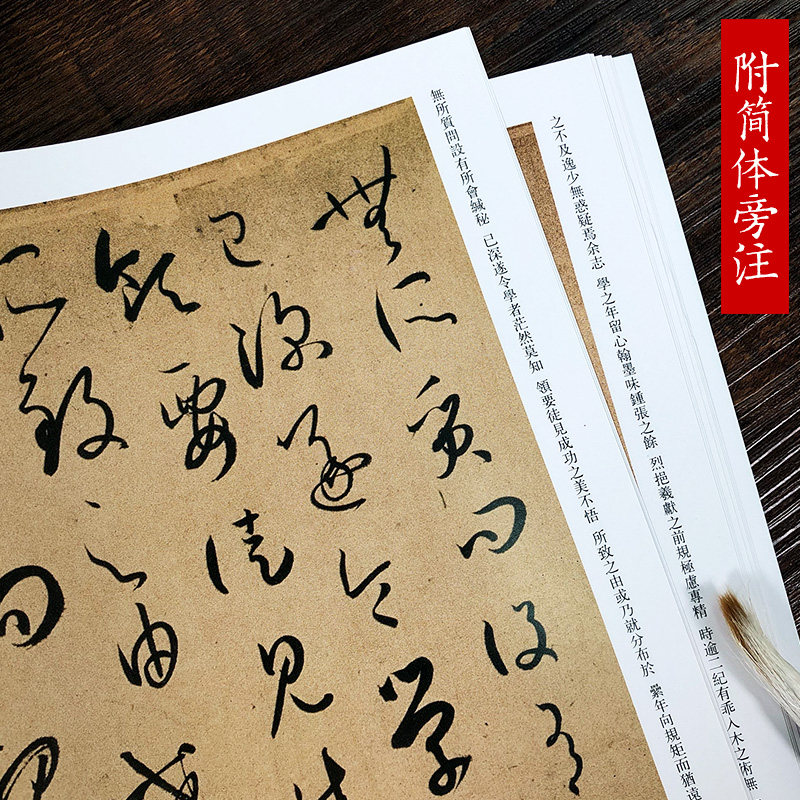 附简体旁注
之不及逸少無惑疑焉余志 學之年留心翰墨味鍾張之餘 烈挹羲獻之前規極慮專精 時逾二紀有乖入木之術無
無所質問設有所會緘秘 已深遂令學者茫然莫知 領要徒見成功之美不悟 所致之由或乃就分布於 纍年向規矩而猶遠
無所質問設有
已深遂令學
領要徒見
所致之由或
向規